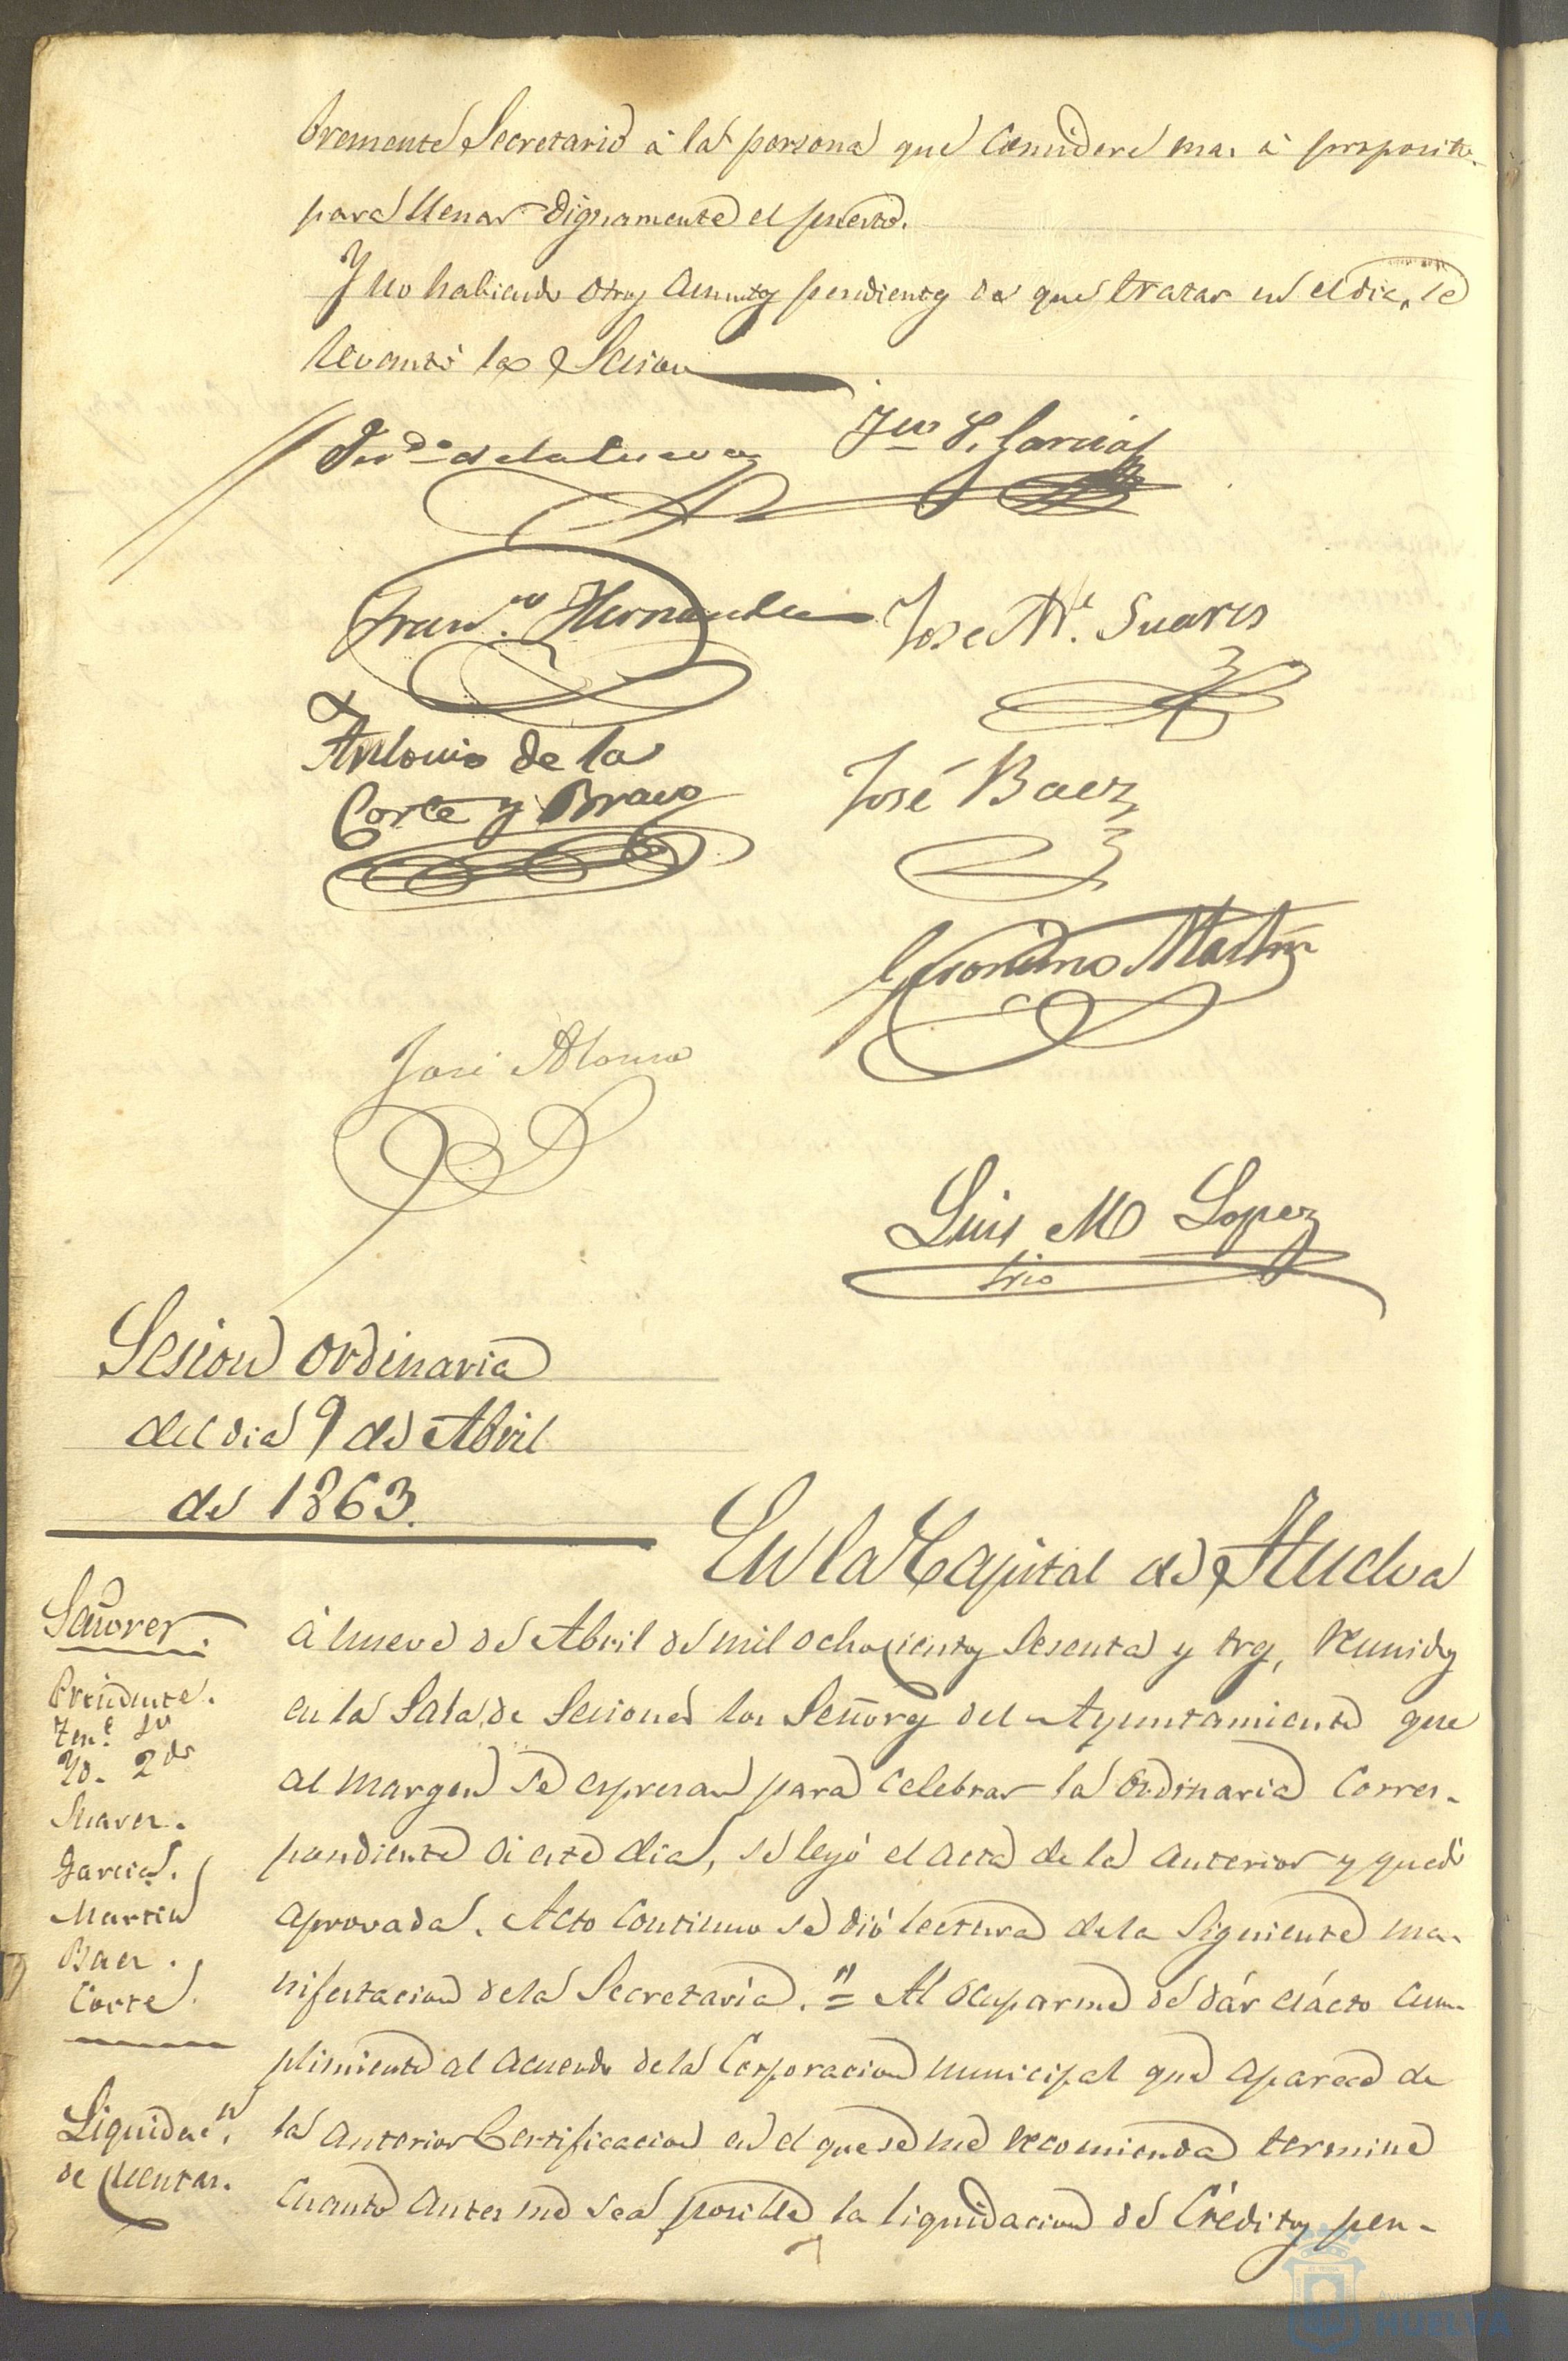 bremente Secretario á la persona que considere mas á proposito
para llenar dignamente el puesto.
Y no habiendo otros asuntos pendientes de que tratar en el dia, se
levantó la Sesion
Fer.do de la Cueva
Fco P. Garcia
Fran.co Hernandez
Jose M.e Suares
Antonio de la
Corte y Bravo
José Baez
Geronimo Martin
José Alonso
Luis M Lopez
Srio
Sesion ordinaria
del dia 9 de Abril
de 1863.
En la Capital de Huelva
Señores.
Presidente.
Ten.e 1o
Yd. 2do
Suares.
Garcia.
Martin
Baez.
Corte.
Liquidac.n
de Cuentas.
á nueve de Abril de mil ochocientos sesenta y tres, reunidos
en la Sala de Sesiones los Señores del Ayuntamiento que
al margen se espresan para celebrar la ordinaria corres-
pondiente á este dia, se leyó el acta de la anterior y quedó
aprovada. Acto continuo se dió lectura de la siguiente ma-
nifestacion de la Secretaria. "= Al ocuparme de dár esácto cum-
plimiento al acuerdo de la Corporacion municipal que aparece de
la anterior Certificacion en el que se me recomienda termine
cuanto antes me sea posible la liquidacion de Créditos pen-
HUELVA